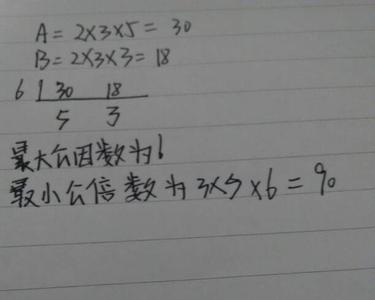 A = 2×3×5 = 30
B = 2×3×3 = 18
6 | 30 18
5 3
最大公因数为6
最小公倍数为 3×5×6 = 90